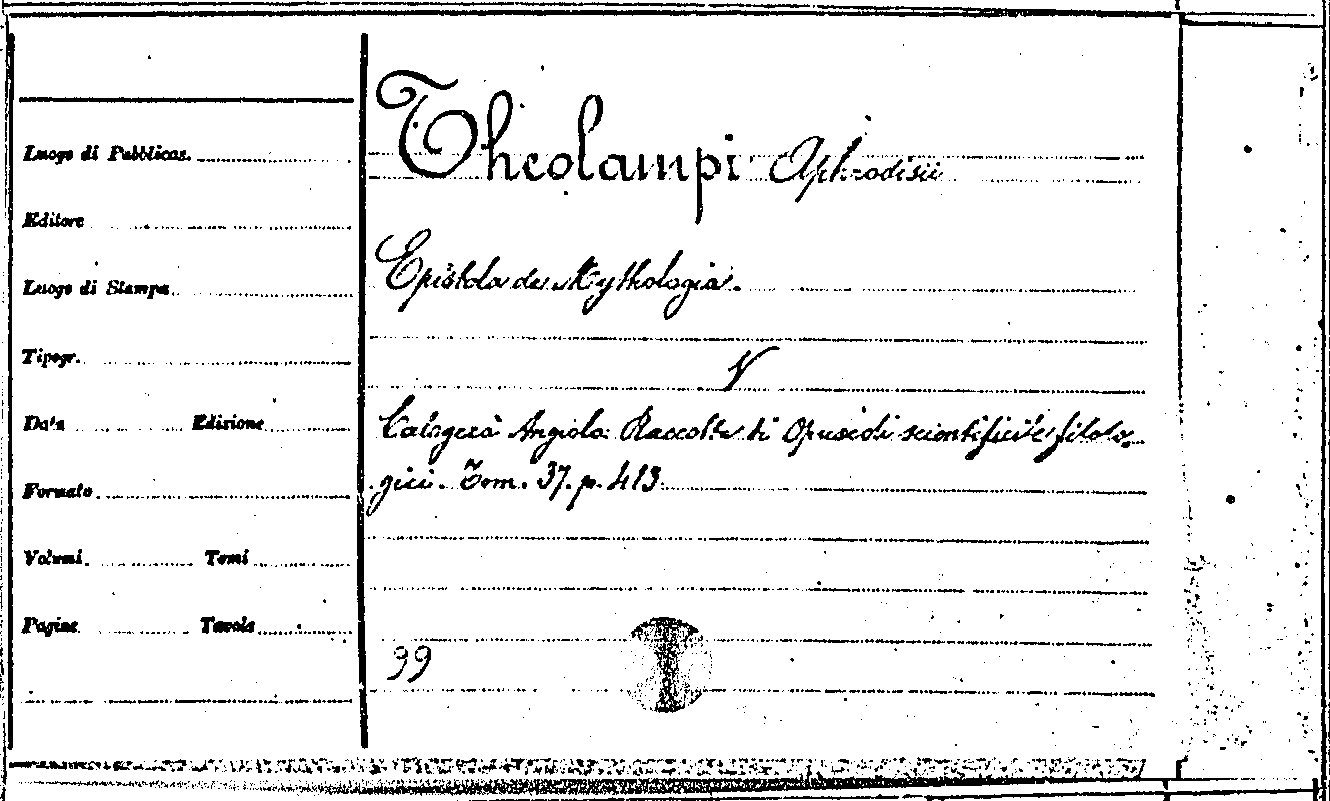 Theolampi Aphrodisii
Luogo di Pubblicaz.
Editore
Epistola de Mythologia.
Luogo di Stampa
Tipogr.
V
Data Edizione
Calogerà Angiolo Raccolta di Opuscoli scientifici e filolo-
gici. Tom. 37. p. 413
Formato
Volumi. Tomi
Pagine Tavole
99